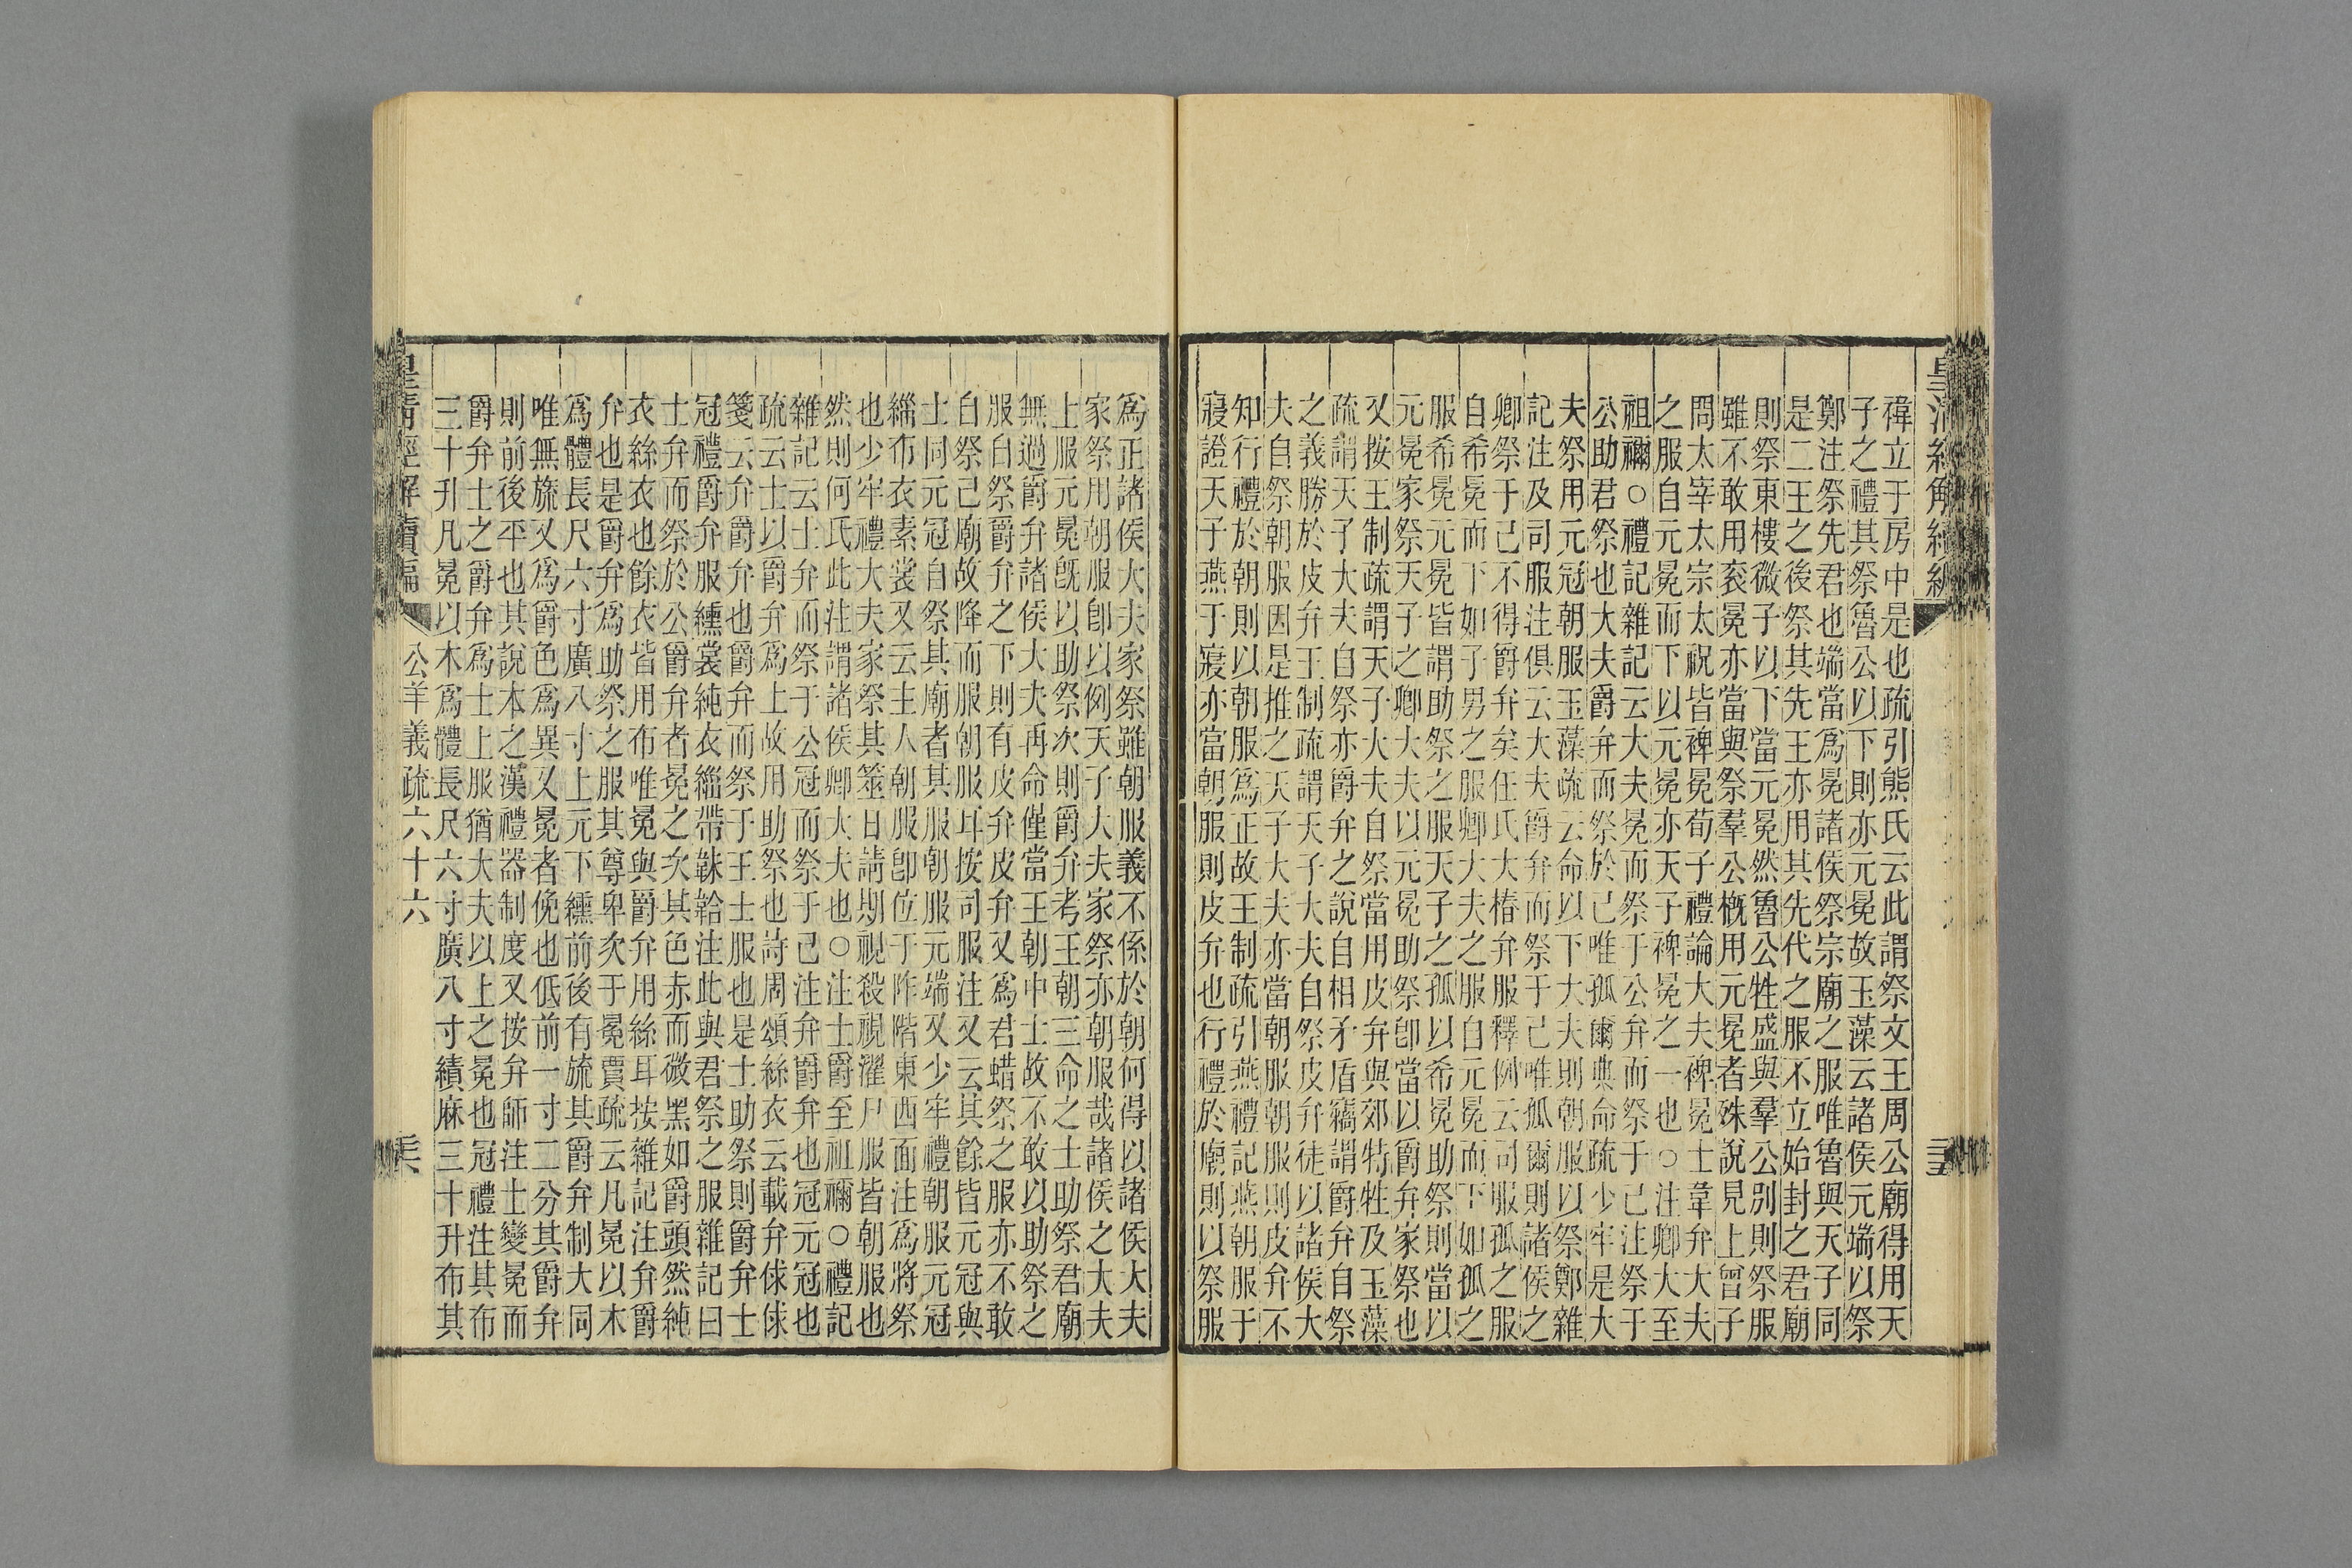 禕立于房中是也疏引熊氏云此謂祭文王周公廟得用天
子之禮其祭魯公以下則亦元冕故玉藻云諸侯元端以祭
鄭注祭先君也端當爲冕諸侯祭宗廟之服唯魯與天子同
是二王之後祭其先王亦用其先代之服不立始封之君廟
則祭東樓微子以下當元冕然魯公牲盛與羣公別則祭服
雖不敢用衮冕亦當與祭羣公概用元冕者殊說見上曾子
問太宰太宗太祝皆裨冕荀子禮論大夫裨冕士韋弁大夫
之服自元冕而下以元冕亦天子裨冕之一也○注卿大至
祖禰○禮記雜記云大夫冕而祭于公弁而祭于己注祭于
公助君祭也大夫爵弁而祭於己唯孤爾典命疏少牢是大
夫祭用元冠朝服玉藻疏云命以下大夫則朝服以祭鄭雜
記注及司服注俱云大夫爵弁而祭于己唯孤爾則諸侯之
卿祭于己不得爵弁矣任氏大椿弁服釋例云司服孤之服
自希冕而下如子男之服卿大夫之服自元冕而下如孤之
服希冕元冕皆謂助祭之服天子之孤以希冕助祭則當以
元冕家祭天子之卿大夫以元冕助祭卽當以爵弁家祭也
又按王制疏謂天子大夫自祭當用皮弁與郊特牲及玉藻
疏謂天子大夫自祭亦爵弁之說自相矛盾竊謂爵弁自祭
之義勝於皮弁王制疏謂天子大夫自祭皮弁徒以諸侯大
夫自祭朝服因是推之天子大夫亦當朝服朝服則皮弁不
知行禮於朝則以朝服爲正故王制疏引燕禮記燕朝服于
寢證天子燕于寢亦當朝服則皮弁也行禮於廟則以祭服
爲正諸侯大夫家祭雖朝服義不係於朝何得以諸侯大夫
家祭用朝服卽以例天子大夫家祭亦朝服哉諸侯之大夫
上服元冕旣以助祭次則爵弁考王朝三命之士助祭君廟
無過爵弁諸侯大夫再命僅當王朝中士故不敢以助祭之
服自祭爵弁之下則有皮弁皮弁又爲君蜡祭之服亦不敢
自祭己廟故降而服朝服耳按司服注又云其餘皆元冠與
士同元冠自祭其廟者其服朝服元端又少牢禮朝服元冠
緇布衣素裳又云主人朝服卽位于阼階東西面注爲將祭
也少牢禮大夫家祭其筮日請期視殺視濯尸服皆朝服也
然則何氏此注謂諸侯卿大夫也○注士爵至祖禰○禮記
雜記云士弁而祭于公冠而祭于己注弁爵弁也冠元冠也
疏云士以爵弁爲上故用助祭也詩周頌絲衣云載弁俅俅
箋云弁爵弁也爵弁而祭于王士服也是士助祭則爵弁士
冠禮爵弁服纁裳純衣緇帶韎韐注此與君祭之服雜記曰
士弁而祭於公爵弁者冕之次其色赤而微黑如爵頭然純
衣絲衣也餘衣皆用布唯冕與爵弁用絲耳按雜記注弁爵
弁也是爵弁爲助祭之服其尊卑次于冕賈疏云凡冕以木
爲體長尺六寸廣八寸上元下纁前後有旒其爵弁制大同
唯無旒又爲爵色爲異又冕者俛也低前一寸二分其爵弁
則前後平也其說本之漢禮器制度又按弁師注士變冕而
爵弁士之爵弁爲士上服猶大夫以上之冕也冠禮注其布
三十升凡冕以木爲體長尺六寸廣八寸績麻三十升布其
皇清經解續編
公羊義疏六十六